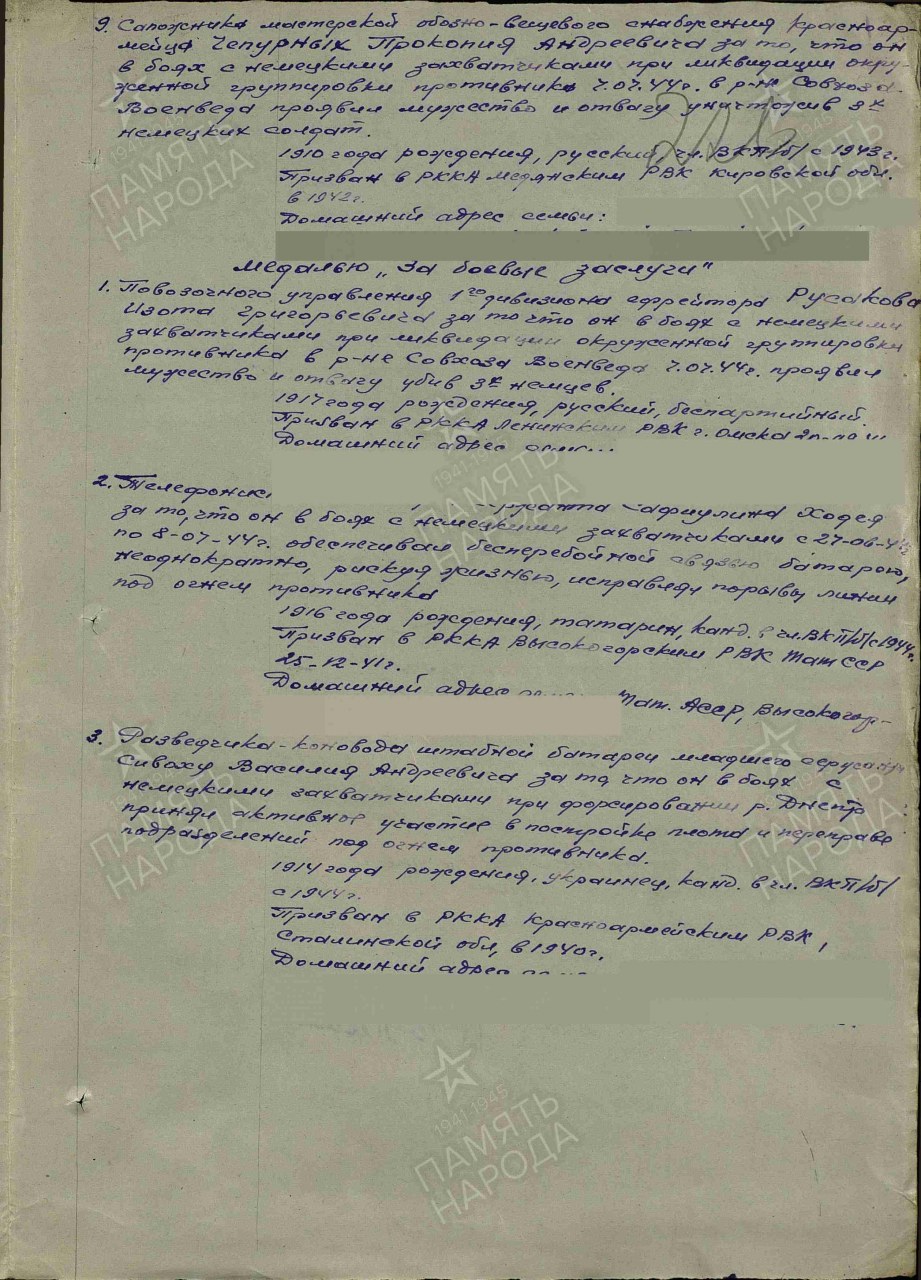 9. Сапожника мастерской обозно-вещевого снабжения красноар-
мейца Чепурных Прокопия Андреевича за то, что он
в боях с немецкими захватчиками при ликвидации окру-
женной группировки противника 7.07.44г. в р-не Совхоза
Военведа проявил мужество и отвагу уничтожив 3х
немецких солдат.
1910 года рождения, русский, чл. ВКП/б/ с 1943г.
Призван в РККА Медянским РВК Кировской обл.
в 1942г.
Домашний адрес семьи:
Медалью „За боевые заслуги"
1. Повозочного управления 1го дивизиона ефрейтора Русакова
Изота Григорьевича за то что он в боях с немецкими
захватчиками при ликвидации окруженной группировки
противника в р-не Совхоза Военведа 7.07.44г. проявил
мужество и отвагу убив 3х немцев.
1917 года рождения, русский, беспартийный.
Призван в РККА Ленинским РВК г. Омска
Домашний адрес
2. Телефонис
Ходея
за то, что он в боях с немецкими захватчиками с 27-06-44г
по 8-07-44г. обеспечивал бесперебойной связью батарею,
неоднократно, рискуя жизнью, исправлял порывы линии
под огнем противника
1916 года рождения, татарин, канд. в чл. ВКП/б/ с 1944г.
Призван в РККА Высокогорским РВК ТатССР
25-12-41г.
Домашний адрес Тат. АССР, Высокогор-
3. Разведчика-коновода штабной батареи младшего сержанта
Сиваху Василия Андреевича за то что он в боях с
немецкими захватчиками при форсировании р. Днепр
принял активное участие в постройке плота и переправе
подразделений под огнем противника.
1914 года рождения, украинец, канд. в чл. ВКП/б/
с 1944г.
Призван в РККА Красноармейским РВК,
Сталинской обл, в 1940г.
Домашний адрес
1941-1945
ПАМЯТЬ
НАРОДА